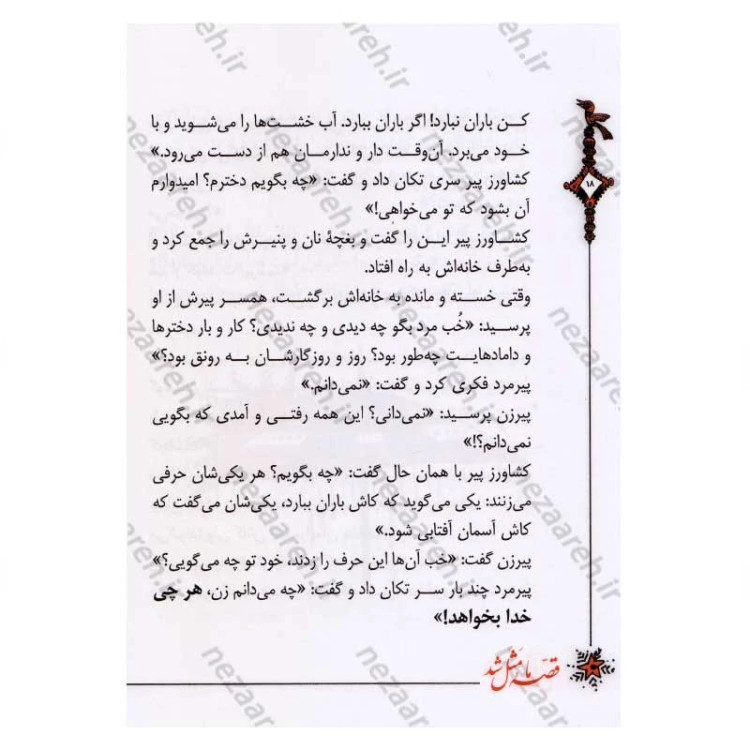 کن باران نبارد! اگر باران ببارد. آب خشت‌ها را می‌شوید و با
خود می‌برد. آن‌وقت دار و ندارمان هم از دست می‌رود.»
کشاورز پیر سری تکان داد و گفت: «چه بگویم دخترم؟ امیدوارم
آن بشود که تو می‌خواهی!»
کشاورز پیر این را گفت و بغچهٔ نان و پنیرش را جمع کرد و
به‌طرف خانه‌اش به راه افتاد.
وقتی خسته و مانده به خانه‌اش برگشت، همسر پیرش از او
پرسید: «خُب مرد بگو چه دیدی و چه ندیدی؟ کار و بار دخترها
و دامادهایت چه‌طور بود؟ روز و روزگارشان به رونق بود؟»
پیرمرد فکری کرد و گفت: «نمی‌دانم.»
پیرزن پرسید: «نمی‌دانی؟ این همه رفتی و آمدی که بگویی
نمی‌دانم؟!»
کشاورز پیر با همان حال گفت: «چه بگویم؟ هر یکی‌شان حرفی
می‌زنند: یکی می‌گوید که کاش باران ببارد، یکی‌شان می‌گفت که
کاش آسمان آفتابی شود.»
پیرزن گفت: «خب آن‌ها این حرف را زدند، خود تو چه می‌گویی؟»
پیرمرد چند بار سر تکان داد و گفت: «چه می‌دانم زن، هر چی
خدا بخواهد!»
۱۸
قصه ما مَثَل شد
nezaareh.ir